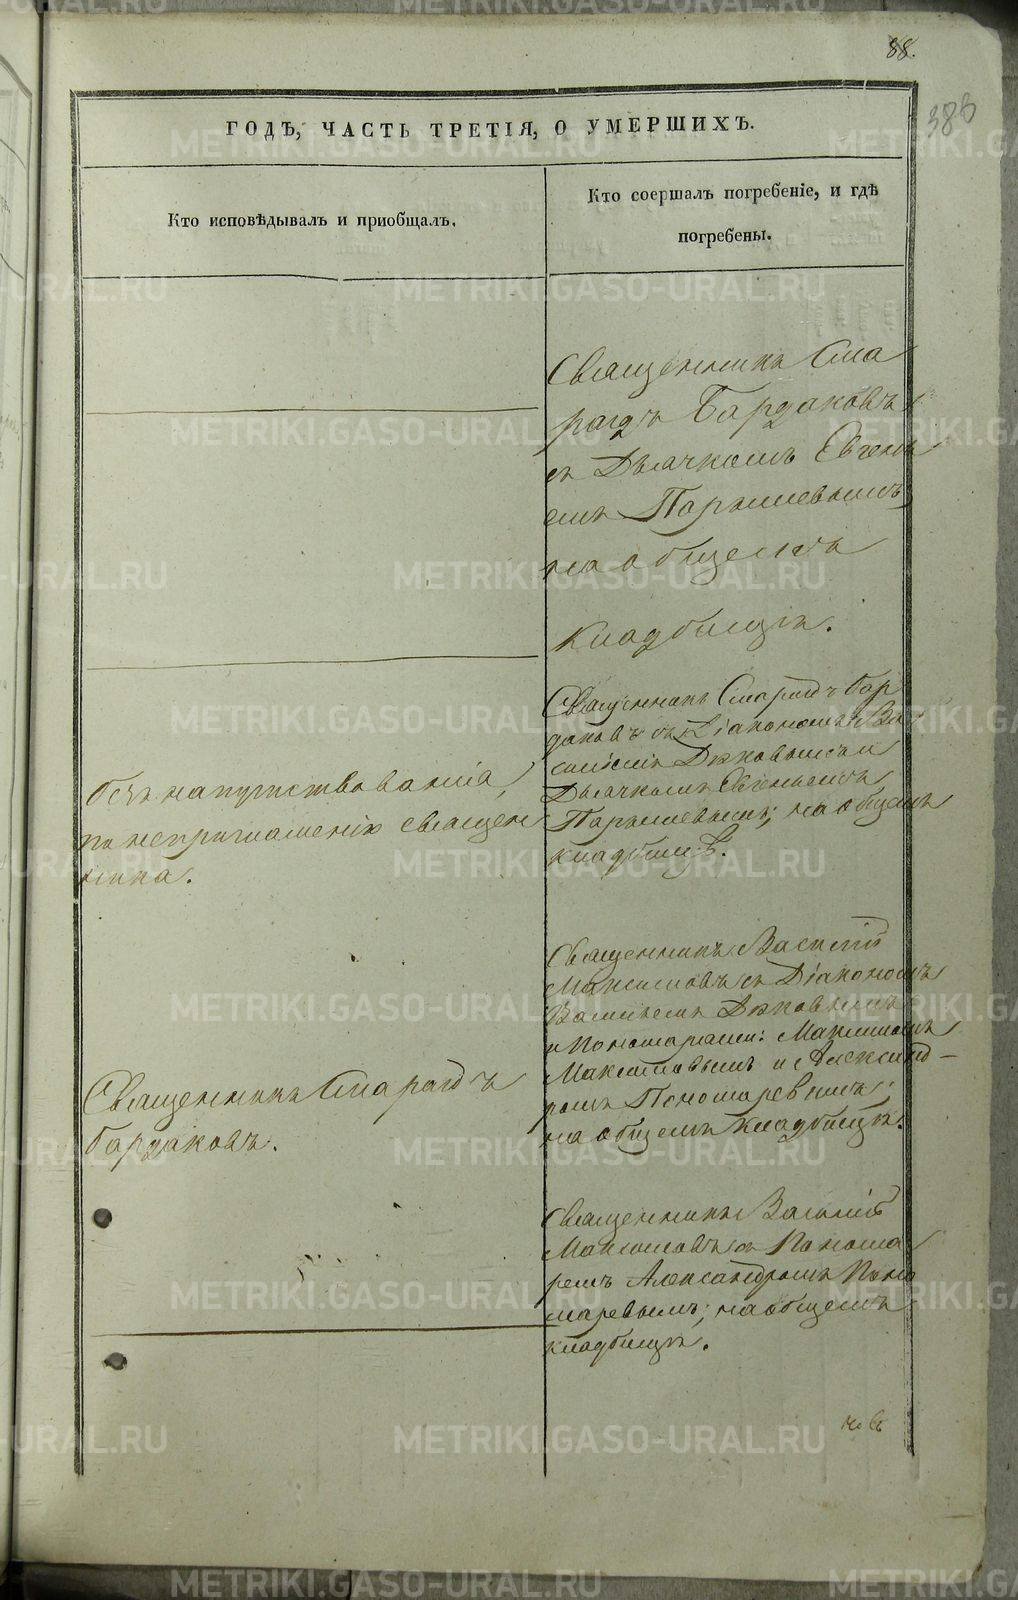 88.
383
ГОДЪ, ЧАСТЬ ТРЕТІЯ, О УМЕРШИХЪ.
Кто исповѣдывалъ и приобщалъ.
Кто соершалъ погребеніе, и гдѣ
погребены.
Священникъ Сма
рагдъ Бардаковъ
съ Дьячкомъ Евгень
емъ Парышевымъ,
на общемъ
кладбищѣ.
безъ напутствованія,
по неприглашенію священ
ника.
Священникъ Смарагдъ Бар
даковъ съ Діакономъ Ва
силіемъ Дяковымъ и
Дьячкомъ Евгеньемъ
Парышевымъ; на общемъ
кладбищѣ.
Священникъ Смарагдъ
Бардаковъ.
Священникъ Василій
Максимовъ съ Діакономъ
Васильемъ Дяковымъ
и Пономарями: Максимомъ
Максимовымъ и Александ-
ромъ Пономаревымъ;
на общемъ кладбищѣ.
Священникъ Василій
Максимовъ съ Понома
ремъ Александромъ Поно
маревымъ; на общемъ
кладбищѣ.
METRIKI.GASO-URAL.RU